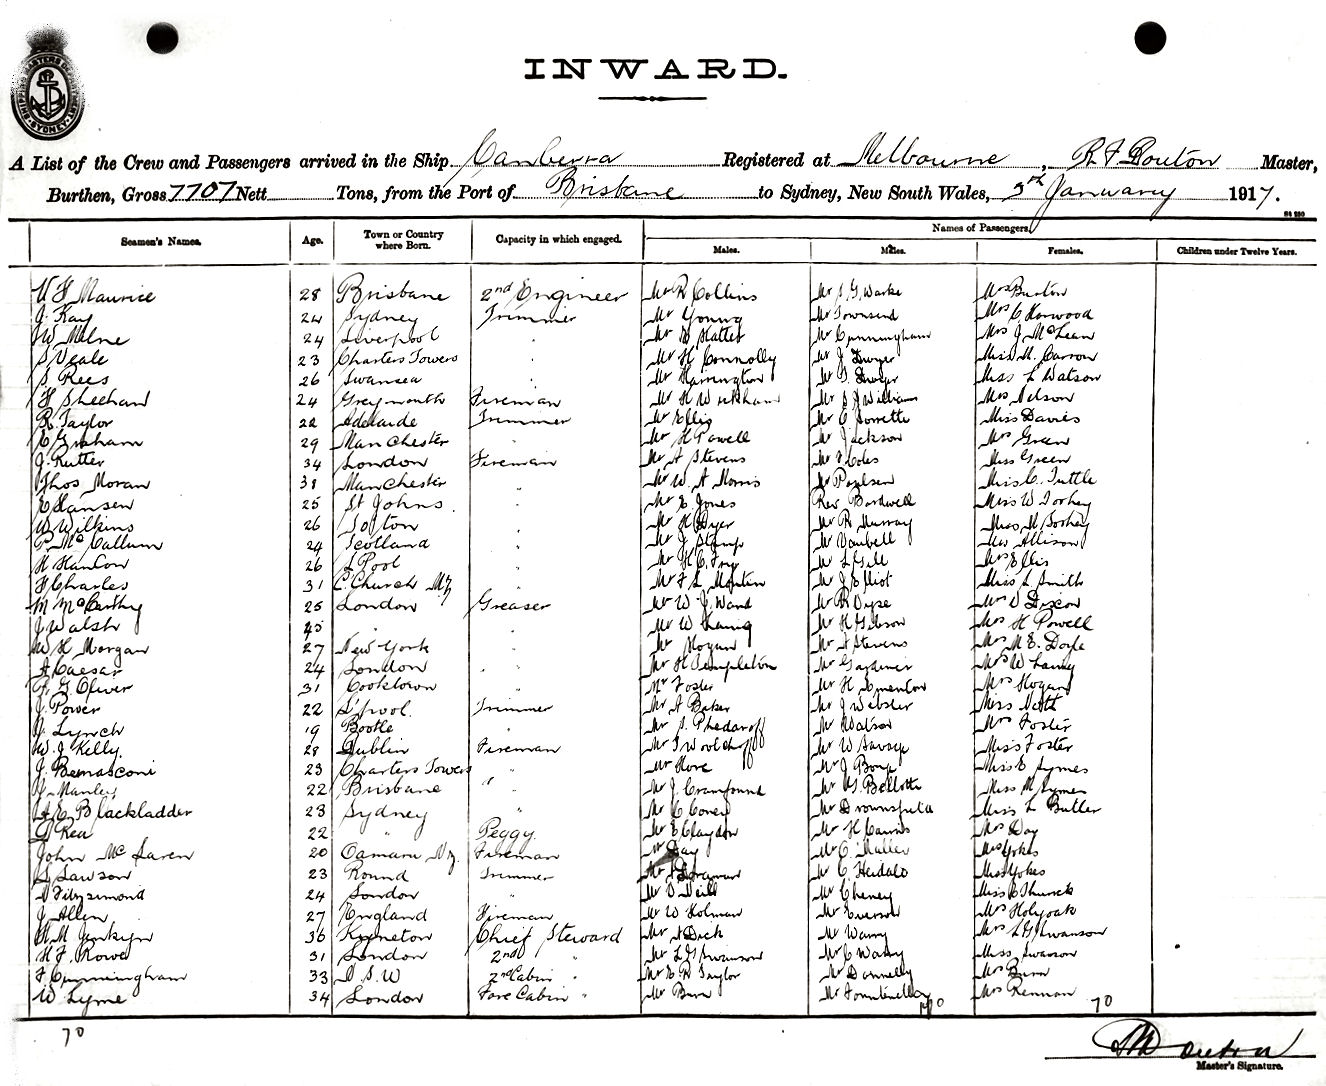 SHIPPING MASTERS DEPARTMENT SYDNEY
INWARD.
A List of the Crew and Passengers arrived in the Ship Canberra Registered at Melbourne, R F Bouton Master,
Burthen, Gross 7707 Nett Tons, from the Port of Brisbane to Sydney, New South Wales, 5th January 1917.
Names of Passengers.
Seamen's Names. Age. Town or Country where Born. Capacity in which engaged. Males. Males. Females. Children under Twelve Years.
W F Maurice 28 Brisbane 2nd Engineer Mr R Collins Mr S. G. Warke Mrs Burton
J. Kay 24 Sydney Trimmer Mr Young Mr Townsend Mrs C Harwood
W Milne 24 Liverpool " Mr Hatter Mr Cunningham Mrs J McLean
S Veale 23 Charters Towers " Mr H Connolly Mr J Dwyer Miss M. Carron
S. Rees 26 Swansea " Mr Harrington Mr Dwyer Miss L Watson
H Sheehan 24 Greymouth Fireman Mr H Mr Williams Mrs Nelson
R. Taylor 22 Adelaide Trimmer Mr Ellis Mr C Miss Davies
Graham 29 Manchester " Mr H Powell Mr Jackson Mrs Green
J. Rutter 34 London Fireman Mr A Stevens Mr Coles Miss Green
Thos Moran 38 Manchester " Mr W. A Morris Mr Paulsen Miss C. Tuttle
E Hansen 25 St Johns " Mr E Jones Rev Bardwell Miss W Toohey
W Wilkins 26 " Mr H Dyer Mr R Murray Miss M Toohey
P. McCallum 24 Scotland " Mr J Stamp Mr Mrs Allison
H Hanlon 26 L'Pool " Mr H. C. Fry Mr L Gill Mrs Ellis
H Charles 31 C. Church NZ " Mr F L Martin Mr J Elliot Miss L Smith
M McCarthy 25 London Greaser Mr W. J. Ward Mr R Dyse Mrs D Dixon
J Walsh 45 " " Mr W Laing Mr H Gibson Mrs H Powell
W H Morgan 27 New York " Mr Hogan Mr A Stevens Mrs M E. Doyle
A Caesar 24 London " Mr H Templeton Mr Gardiner Mrs W Laing
F. G Oliver 31 Cooktown " Mr Foster Mr H Mrs Hogan
J. Power 22 L'pool Trimmer Mr A Baker Mr J Webster Miss Nott
J Lynch 19 Bootle " Mr S. Mr Watson Mrs Foster
W. J Kelly 28 Dublin Fireman Mr Mr W Savage Miss Foster
J. Bernasconi 23 Charters Towers " Mr Hore Mr J Bone Miss E Symes
J. Manley 22 Brisbane " Mr J. Crawfound Mr Bellotti Miss M Symes
A E Blackladder 23 Sydney Mr C Corey Mr Miss L Butler
Rea 22 " Peggy. Mr E Claydon Mr H Cairns Mrs Day
John McLaren 20 Oamaru NZ. Fireman Mr Day Mr C. Muller Mrs Yokes
Lawson 23 Round Trimmer Mr Mr C Heidals Miss Yokes
Fitzsimond 24 London " Mr Mr Cheney Miss
J Allen 27 England Fireman Mr W Holman Mr Everson Mrs Holyoak
M Jenkyn 36 Kyneton Chief Steward Mr Dick Mr Wanny Mrs L G Swanson
H. F. Rowe 31 London 2nd " Mr L G Swanson Mr C Miss Swanson
F Cunningham 33 2nd Cabin " Mr E R Taylor Mr Donnelly Mrs Burn
W Lyme 34 London Fore Cabin " Mr Burn Mr Mrs Rennan
70 70 70
Master's Signature.